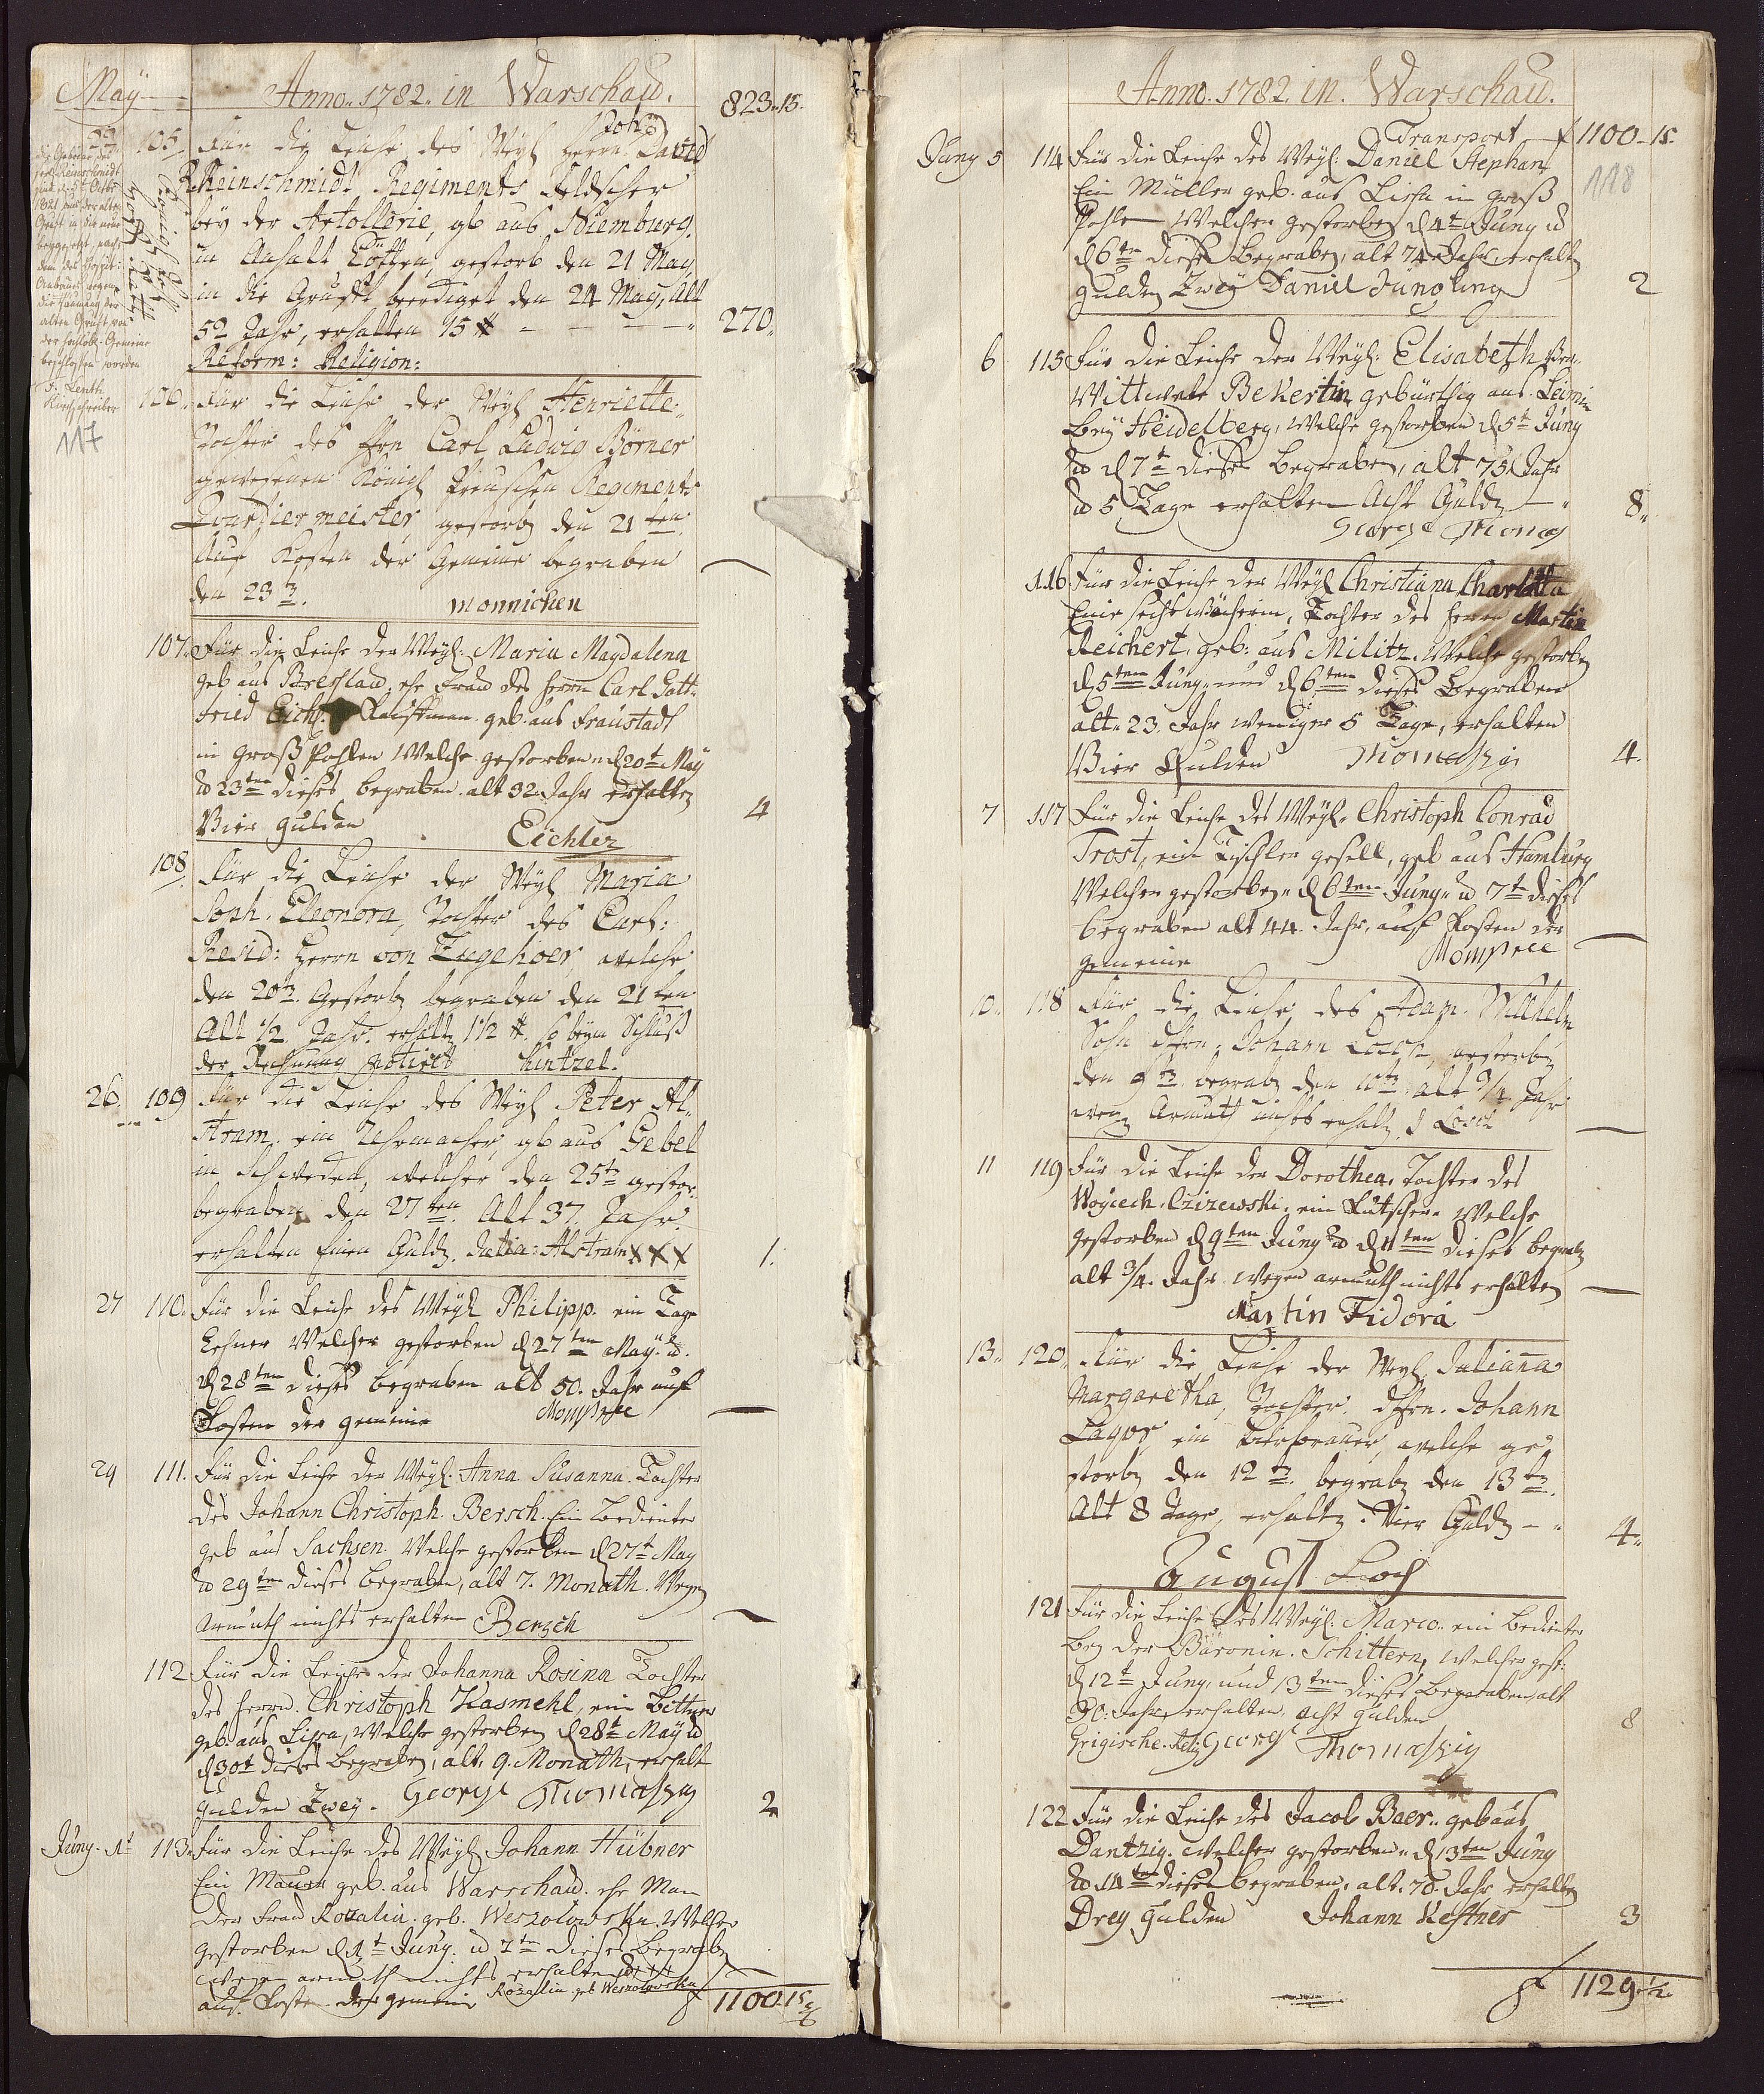 May
Anno. 1782. in Warschau.
823.. 15.
23. 105. Für die Leiche des Weyl Herrn Joh: David
Kleinschmidt Regiments Feldscher
bey der Artollerie, geb aus Niemburg.
in Anhalt Cötten, gestorb den 21 May,
in die Gruft beerdiget den 24 May, Alt
52 Jahr, erhalten 15 # - - - - 270..
Reform: Religion:
die Gebeine des
Kleinschmidt
sind
aus der alten
Gruft in die neue
beygesetzt, nach
dem des Hospit:
Anbaues wegen
die Räumung der
alten Gruft von
der hochlöbl. Gemeine
beschlossen worden
J. Lenth
Kirchschreiber
117
106. Für die Leiche der Weyl Henriette..
Tochter des Hrn Carl Ludwig Börner
gewesenen Königl Preuschen Regiments
Quartiermeister, gestorb den 21 ten
Auf Kosten der Gemeine begraben —
den 23 t. Monnichen
107. Für die Leiche der Weyl. Maria Magdalena
geb aus Bresslau. ehe Frau des Herrn Carl Gott-
fried Eichl. Kauffman. geb. aus Fraustadt
in Groß Pohlen Welche gestorben d 20 t May
u 23ten dieses begraben. alt 32 Jahr erhalten
Vier Gulden Eichler 4
108. Für die Leiche der Weyl Maria
Soph. Eleonora, Tochter des
Resid: Herrn von Zugehoer, welche
den 20 t. Gestorb begraben den 21 ten
Alt 1/2 Jahr. erhalt 1 1/2 #. so beym Schluß
der Rechnung notirt Hintzel.
26. 109 Für die Leiche des Weyl Peter Al-
stram. ein Uhrmacher, gb aus Gebel
in Schweden, welcher den 25 t gestor.
begraben den 27 ten. Alt 37. Jahr.
erhalten Einen Guld. Julia: Alstram XXX 1.
27 110. Für die Leiche des Weyl Philipp. ein Tage
Lehner Welcher gestorben d 27 ten May. u.
d 28 ten dieses begraben alt 50. Jahr auf
Kosten der gemeine Mompree —
29 111. Für die Leiche der Weyl. Anna Susanna Tochter
des Johann Christoph. Bersch. Ein Bedienter
geb aus Sachsen. Welche gestorben d 27 t May
u 29 ten dieses begraben, alt 7. Monath. Wegen
armuth nichts erhalten Bersch —
112 Für die Leiche der Johanna Rosina Tochter
des Herrn. Christoph Kasmehl, ein Bittner
geb. aus Lissa, Welche gestorben d 28 t May u
d 30 t dieses begraben, alt. 9. Monath, erhalt
Gulden Zwey. George Thomaszig 2
Juny. 1 t 113. Für die Leiche des Weyl Johann Hübner
Ein Maurer geb. aus Warschau. ehe Man
der Frau Rozalia. geb. Weszolowska. Welcher
gestorben d 1 t Juny. u 2 ten dieses begraben
wegen armuth nichts erhalten XXX —
auf. Kosten der gemein Rozalia geb Weszolowska
f 1100. 15 g
Anno. 1782. in. Warschau.
Transport f 1100.. 15.
118
Juny 5 114 Für die Leiche des Weyl. Daniel Stephan
Ein Müller geb. aus Lissa in groß
Pohlen Welcher gestorben d 4 t Juny u
d 6 ten dieses begraben, alt 74 Jahr, erhalten
gulden Zwey Daniel Jüngling 2
6 115 Für die Leiche der Weyl. Elisabeth
Wittwete Bekertin gebürthig aus Leimin
bey Heidelberg, welche gestorben d 5 t Juny
u d 7 t dieses begraben, alt 75 Jahr
u 5 Tage erhalten Acht Guld — 8..
George Thomas
116 Für die Leiche der Weyl Christiana Charlotta
Tochter des Herrn Martin
Reichert, geb: aus Militz. Welche gestorben
d 5 ten Juny. und d 6 ten dieses begraben
alt. 23. Jahr weniger 5 Tage, erhalten
Vier Gulden Thomaszig 4.
7 117 Für die Leiche des Weyl. Christoph Conrad
Trost, ein Tischler gesell, geb aus Hamburg
Welcher gestorben d 6 ten Juny. u 7 t dieses
begraben alt 44. Jahr, auf Kosten der
gemeine Mompree —
10.. 118 Für die Leiche des Adam. Wilhelm
Sohn dHrn. Johann Lock, gestorb
den 9 t. begrab den 10 t. alt 3/4 Jahr
weg Armuth nichts erhalt. J Lock —
11 119 Für die Leiche der Dorothea. Tochter des
Woyciech. Czizewski, ein Kutscher. Welche
gestorben d 9 ten Juny u d 11 ten dieses begrab
alt 3/4. Jahr. wegen armuth nichts erhalten —
Martin Fidora
13.. 120.. Für die Leiche der Weyl. Julianna
Margaretha, Tochter dHrn. Johann
Lagos, ein Bierbrauer, welche ge-
storb den 12 t. begrab den 13 t.
Alt 8 Tage, erhalt. Vier Guld — 4..
August Loch
121 Für die Leiche des Weyl. Marco. ein Bedienter
bey der Baronin. Schittern, Welcher gest:
d 12 t Juny, und 13 ten dieses begraben, alt
30. Jahr, erhalten. acht gulden 8
Grigische. Relig George Thomaszig
122 Für die Leiche des Jacob Baer.. geb aus
Dantzig. Welcher gestorben.. d 13 ten Juny
u 14 ten dieses begraben. alt. 70. Jahr. erhalten
Drey gulden Johann Kestner 3
f 1129. 1/2